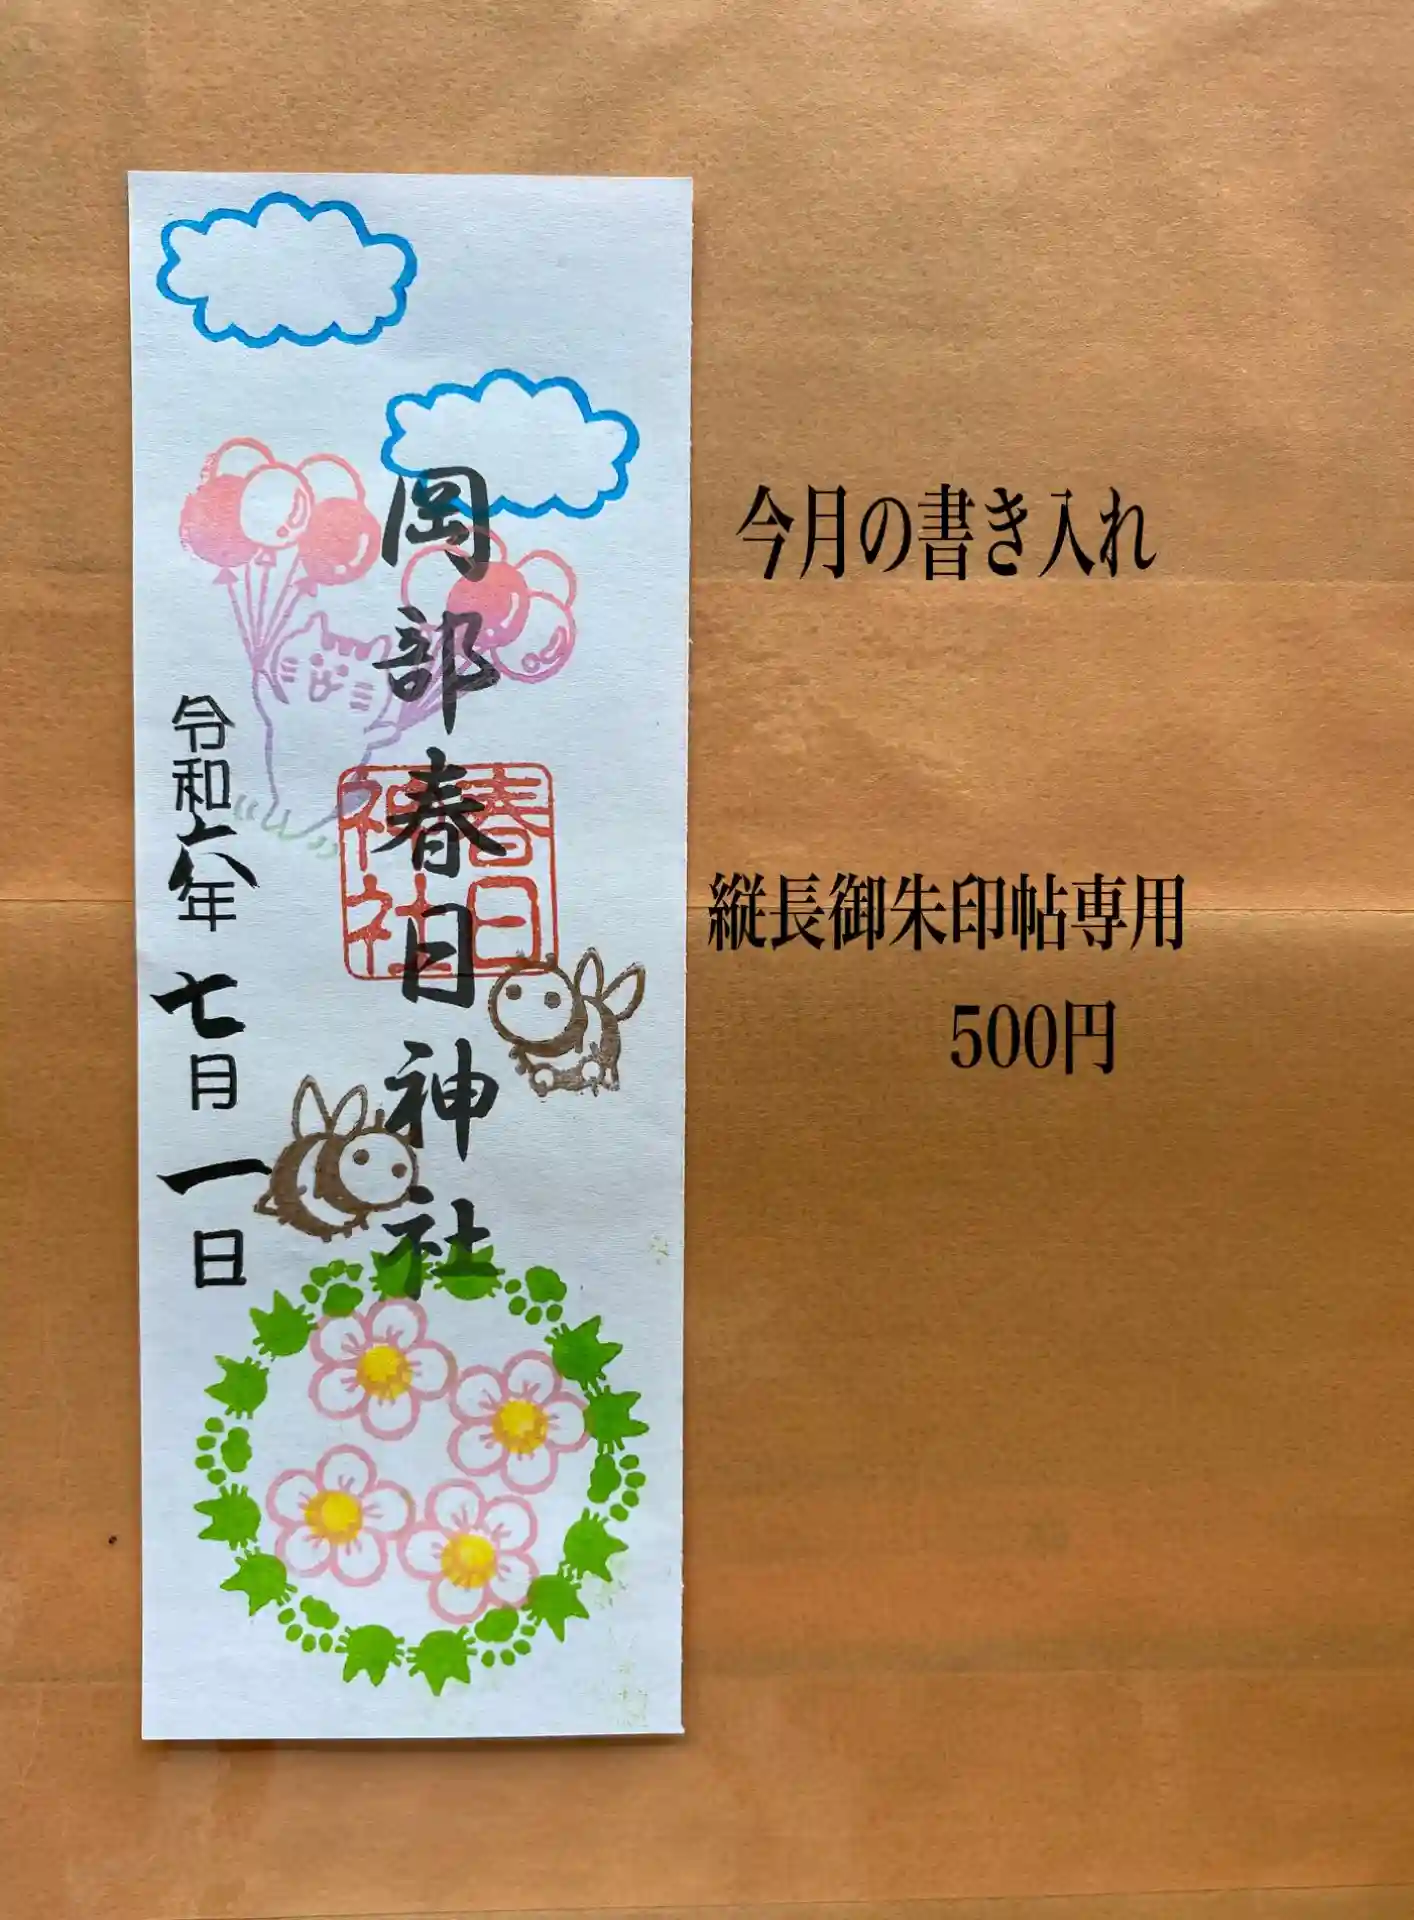 岡部春日神社
春日
神社
令和六年 七月 一日
今月の書き入れ
縦長御朱印帖専用
500円